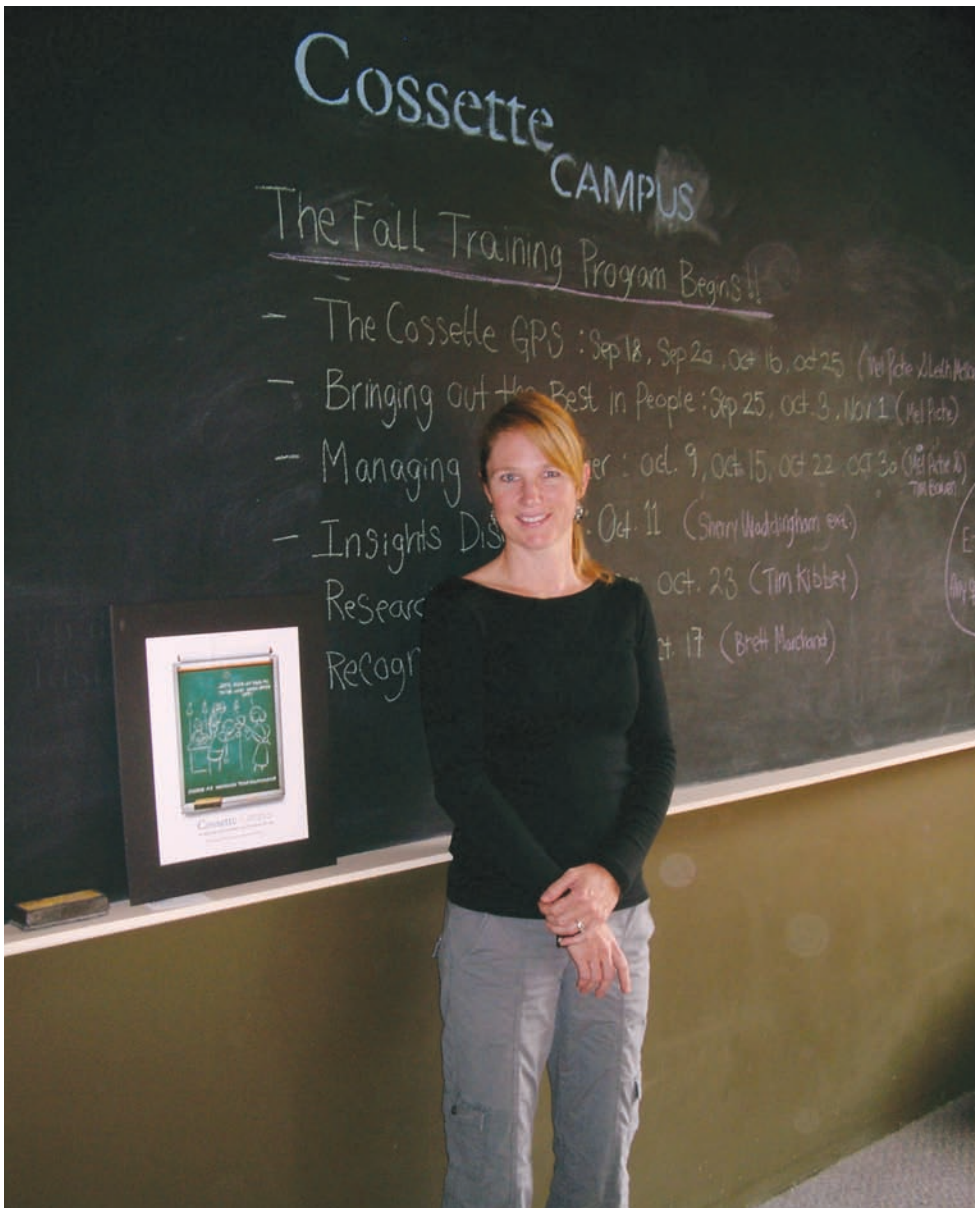 Cossette
CAMPUS
The Fall Training Program Begins!!
- The Cossette GPS : Sep 18, Sep 20, Oct 16, oct 25 (Mel Piche &
- Bringing out the Best in People : Sep 25, oct. 3, Nov 1 (Mel Piche)
- Managing er : oct. 9, oct. 15, oct 22, oct 30 (Mel Piche &
Tim Bowen)
- Insights Dis : Oct. 11 (Sherry Waddingham ext.)
Researc oct. 23 (Tim Kibbey)
Recogn ct. 17 (Brett Marchand)
Cossette Campus